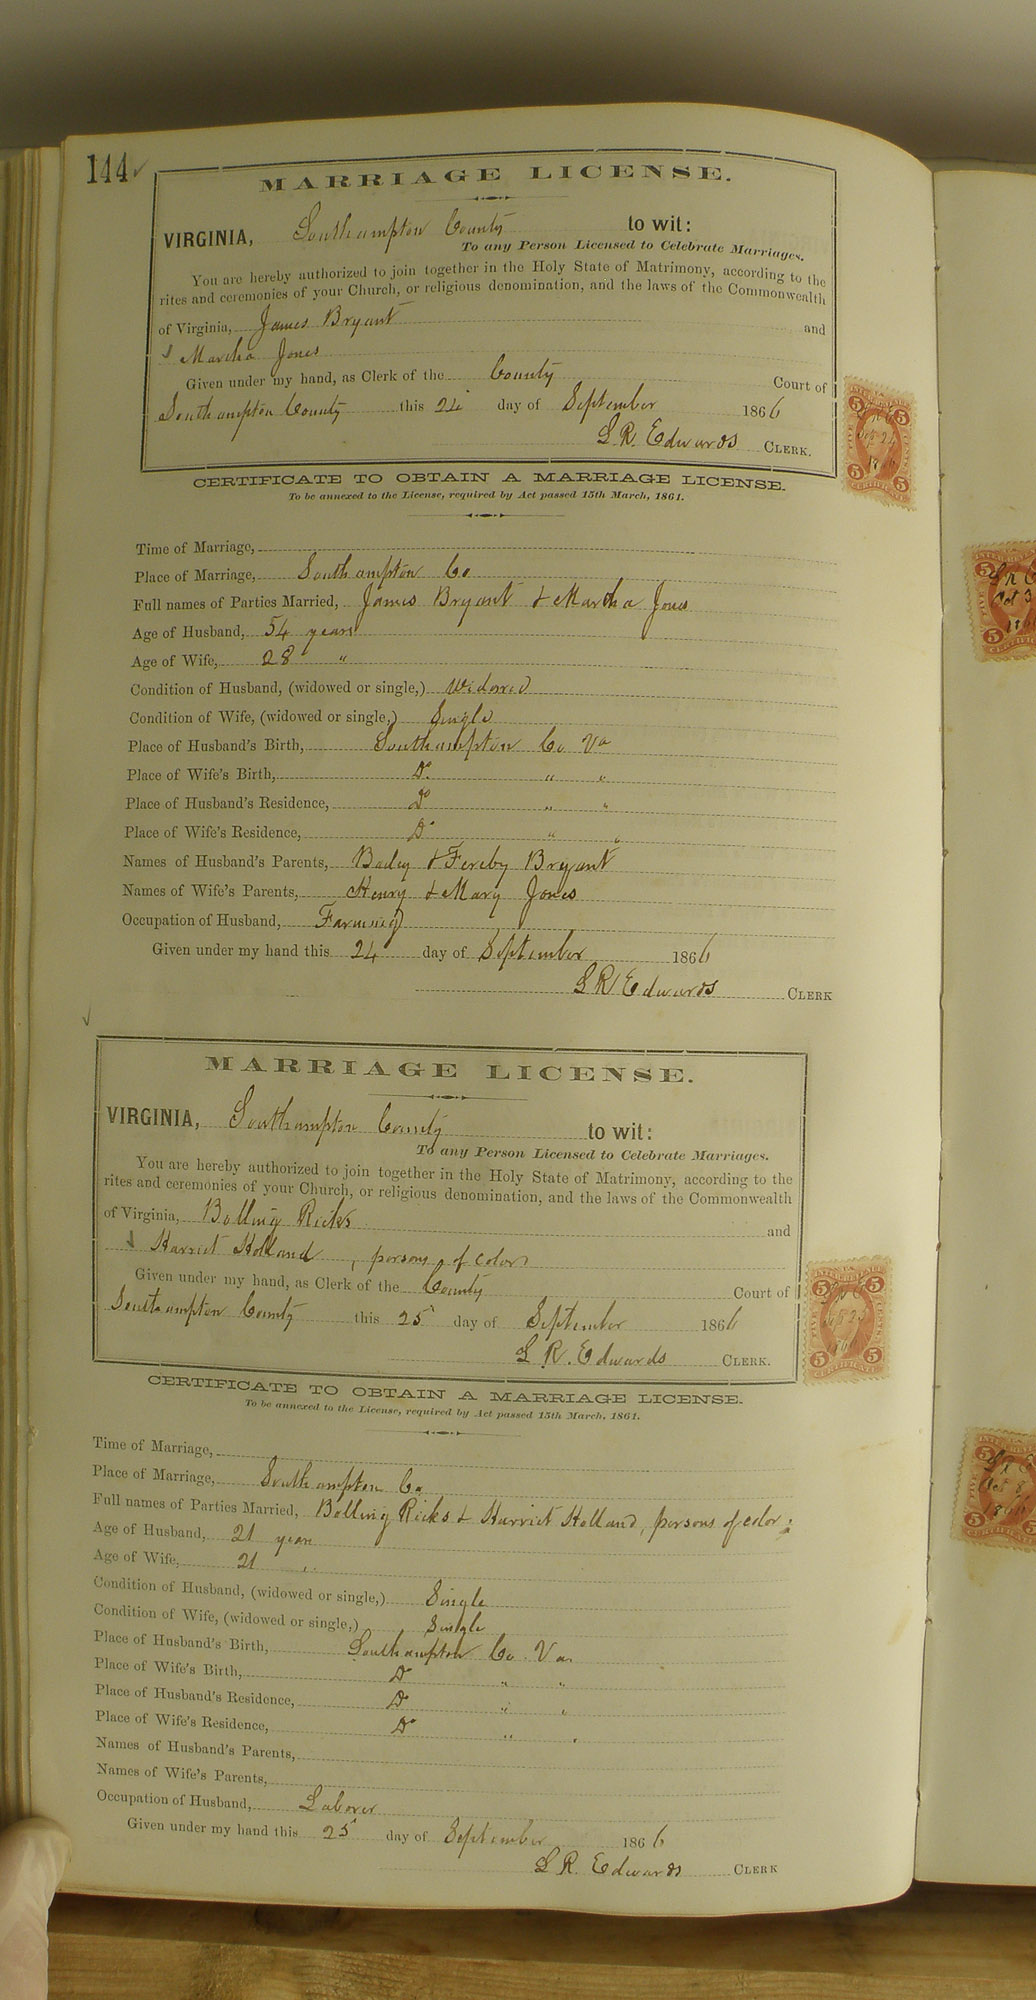 144
MARRIAGE LICENSE.
VIRGINIA, Southampton County to wit:
To any Person Licensed to Celebrate Marriages.
You are hereby authorized to join together in the Holy State of Matrimony, according to the
rites and ceremonies of your Church, or religious denomination, and the laws of the Commonwealth
of Virginia, James Bryant and
Martha Jones
Given under my hand, as Clerk of the County Court of
Southampton County this 24 day of September 1866
L R. Edwards CLERK.
CERTIFICATE TO OBTAIN A MARRIAGE LICENSE.
To be annexed to the License, required by Act passed 15th March, 1861.
Time of Marriage,
Place of Marriage, Southampton Co
Full names of Parties Married, James Bryant & Martha Jones
Age of Husband, 54 years
Age of Wife, 28 "
Condition of Husband, (widowed or single,) Widowed
Condition of Wife, (widowed or single,) Single
Place of Husband's Birth, Southampton Co Va
Place of Wife's Birth, Do " "
Place of Husband's Residence, Do " "
Place of Wife's Residence, Do " "
Names of Husband's Parents, & Fereby Bryant
Names of Wife's Parents, Henry & Mary Jones
Occupation of Husband, Farming
Given under my hand this 24 day of September 1866
L R Edwards CLERK
MARRIAGE LICENSE.
VIRGINIA, Southampton County to wit:
To any Person Licensed to Celebrate Marriages.
You are hereby authorized to join together in the Holy State of Matrimony, according to the
rites and ceremonies of your Church, or religious denomination, and the laws of the Commonwealth
of Virginia, Bolling Ricks and
Harriet Holland, persons of color
Given under my hand, as Clerk of the County Court of
Southampton County this 25 day of September 1866
L R. Edwards CLERK.
CERTIFICATE TO OBTAIN A MARRIAGE LICENSE.
To be annexed to the License, required by Act passed 15th March, 1861.
Time of Marriage,
Place of Marriage, Southampton Co
Full names of Parties Married, Bolling Ricks & Harriet Holland, persons of color
Age of Husband, 21 years
Age of Wife, 21 "
Condition of Husband, (widowed or single,) Single
Condition of Wife, (widowed or single,) Single
Place of Husband's Birth, Southampton Co Va
Place of Wife's Birth, Do " "
Place of Husband's Residence, Do " "
Place of Wife's Residence, Do " "
Names of Husband's Parents,
Names of Wife's Parents,
Occupation of Husband, Laborer
Given under my hand this 25 day of September 1866
L R. Edwards CLERK